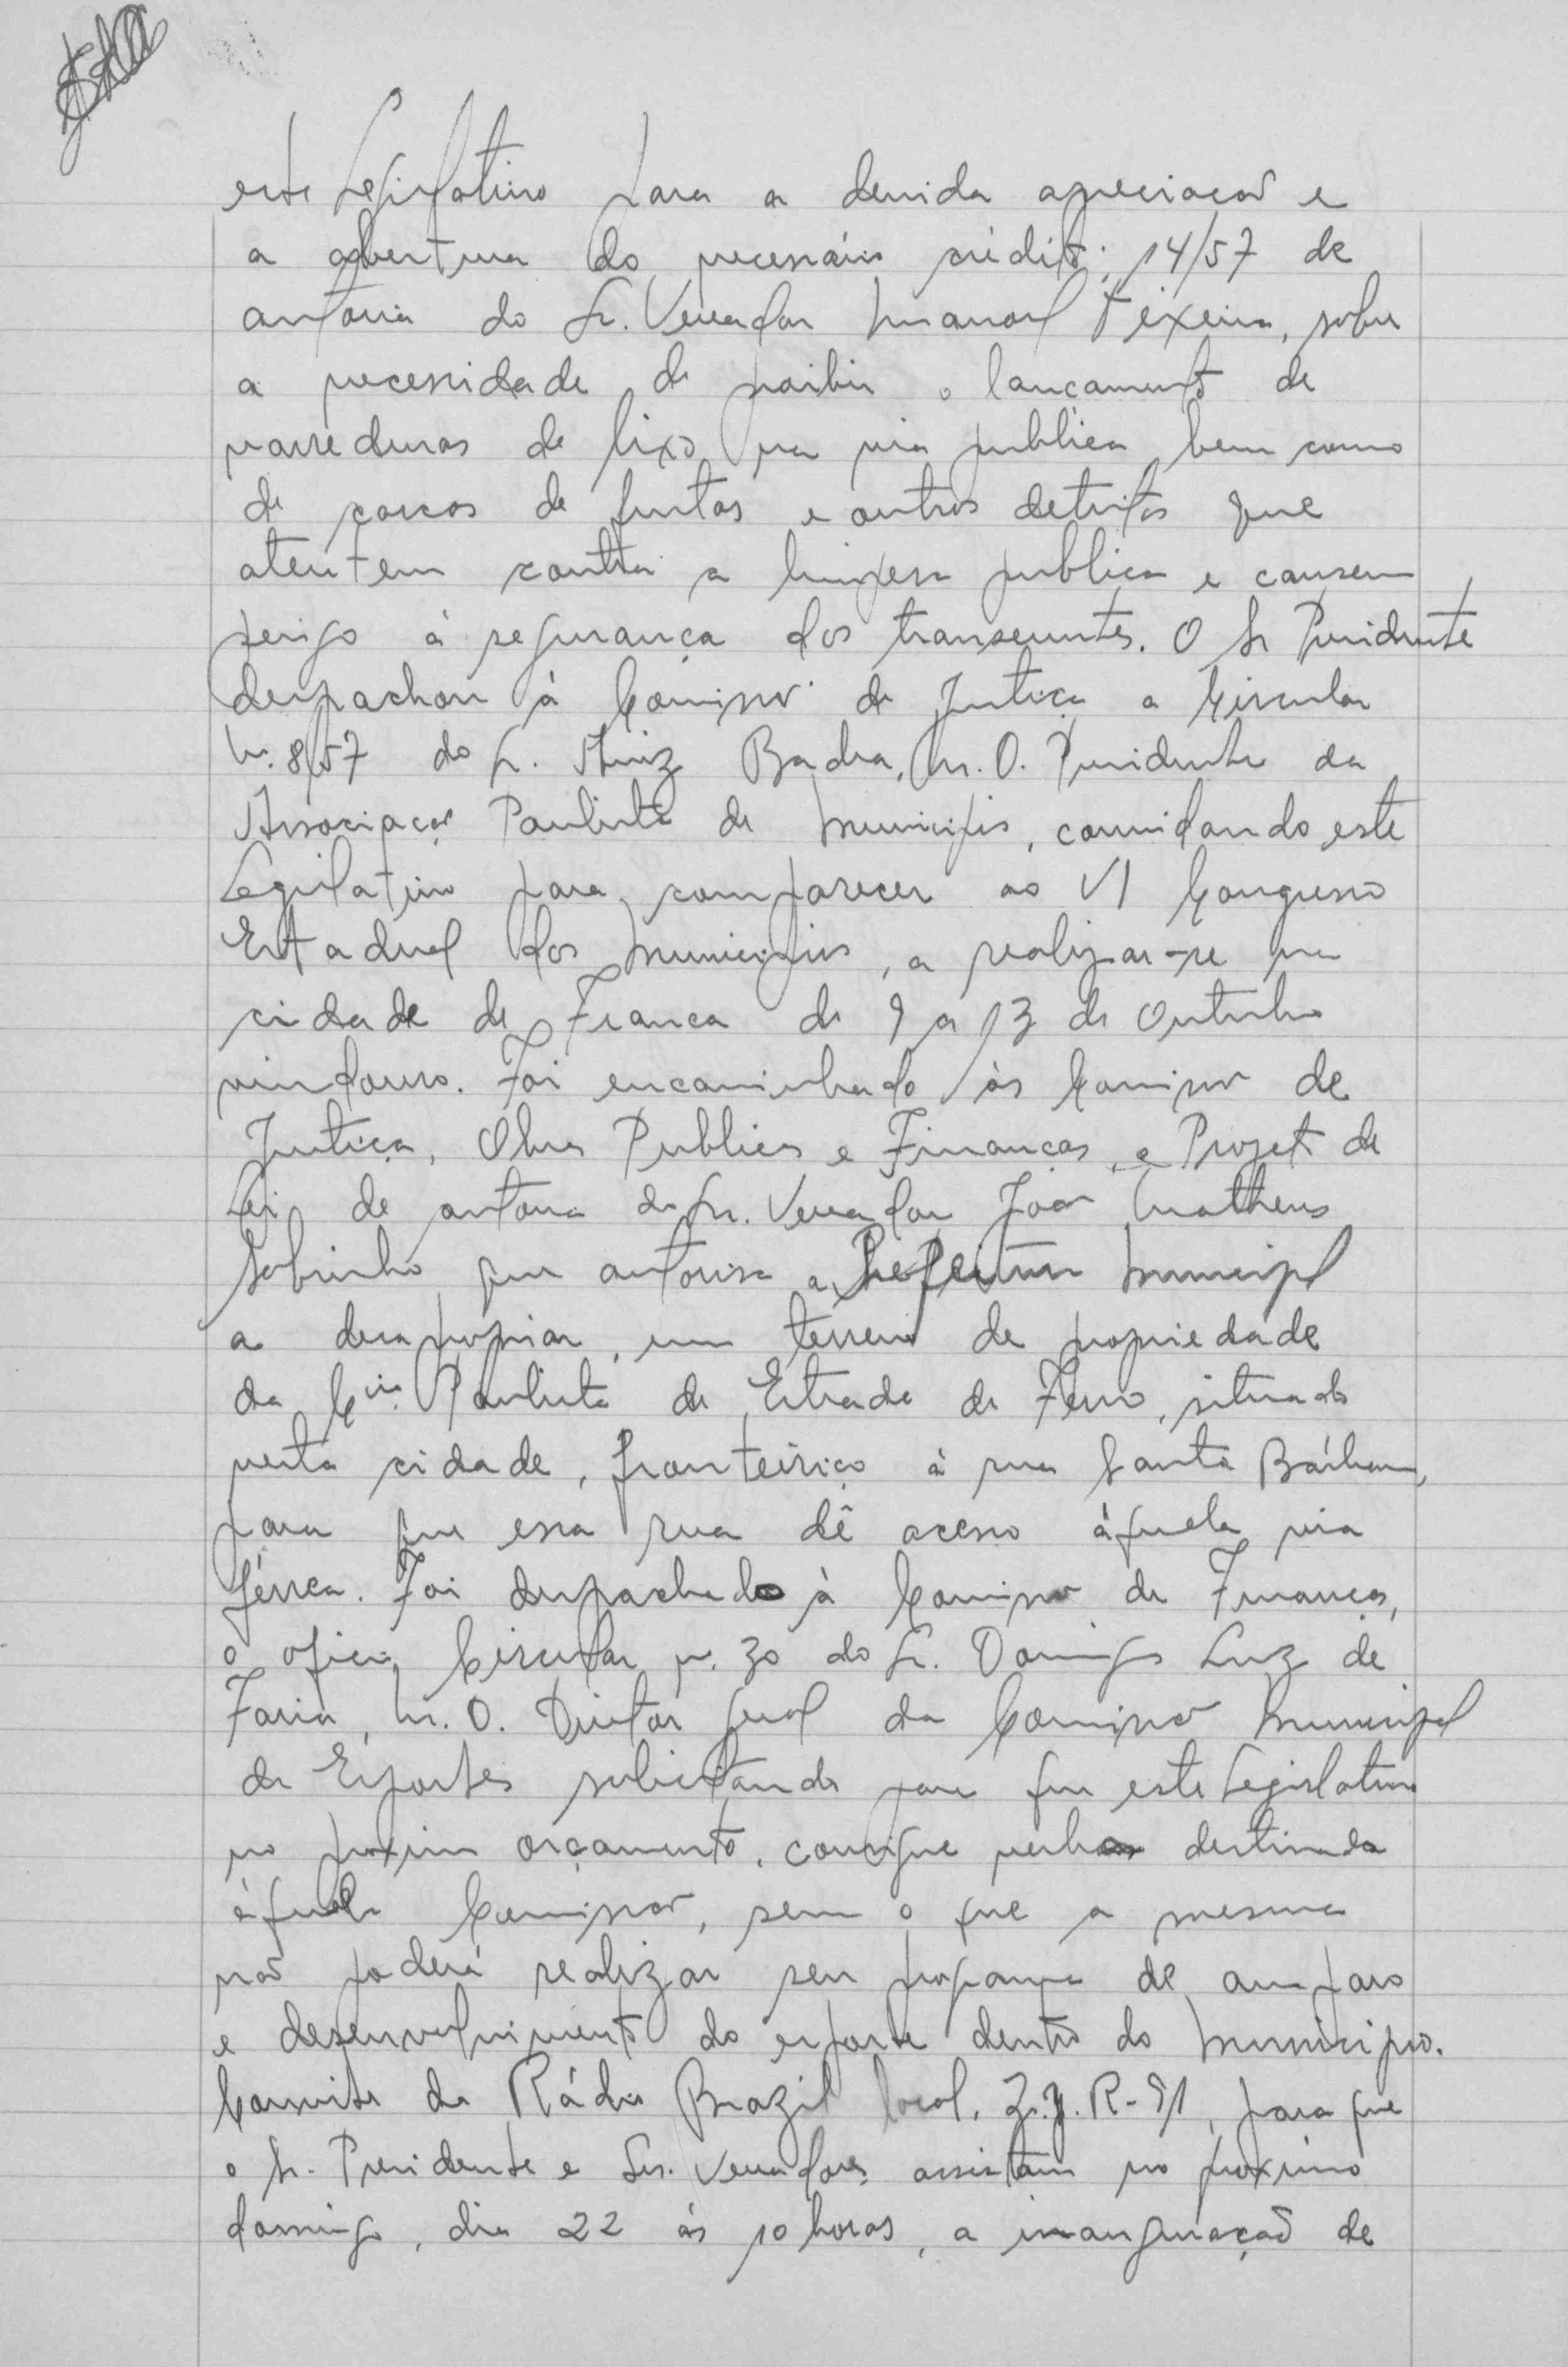 este Legislativo para a devida apreciacão e
a abertura do necessário crédito; 14/57 de
autoria do Sr. Vereador Manoel Teixeira, sobre
a necessidade de proibir o lancamento de
varreduras de lixo na via publica bem como
de cascas de frutas e outros detritos que
atentem contra a limpesa publica e causem
perigo à segurança dos transeuntes. O Sr Presidente
despachou à Comissão de Justiça a Circular
n. 8/57 do Sr. Aniz Badra, M. D. Presidente da
Associação Paulista de Municipios, convidando este
Legislativo para comparecer ao VI Congresso
Estadual dos Municipios, a realizar-se na
cidade de Franca de 9 a 13 de Outubro
vindouro. Foi encaminhado às Comissão de
Justiça, Obras Publicas e Finanças, o Projeto de
Lei de autoria do Sr. Vereador João Matheus
Sobrinho que autorisa a Prefeitura Municipal
a desapropriar, um terreno de propriedade
da Cia. Paulista de Estrada de Ferro, situado
nesta cidade, fronteiriço à rua Santa Bárbara,
para que essa rua dê acesso àquela via
férrea. Foi despachado à Comissão de Finanças,
o oficio Circular n. 30 do Sr. Domingos Luz de
Faria, M. D. Diretor geral da Comissão Municipal
de Esportes solicitando para que este Legislativo
no proximo orçamento, consigne verba destinada
àquela Comissão, sem o que a mesma
não poderá realizar seu programa de amparo
e desenvolvimento do esporte dentro do Municipio.
Convite da Rádio Brazil local, Z.Y.R-91, para que
o Sr. Presidente e Srs. Vereadores assistam no proximo
domingo, dia 22 às 10 horas, a inauguração de